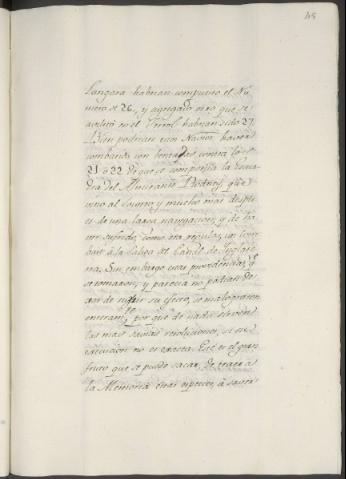 45
Langara habrian compuesto el Nu-
mero de 26, y agregado otro que se
en el Ferrol habrian sido 27.
Bien podrian esos Navios haver
combatido con ventajas contra los
21 ó 22 de que se componia la Esqua-
dra del Almirante Rodney, que
vino al socorro, y mucho mas despu-
es de una larga navegacion, y de ha-
ver sufrido, como era regular, un
à la Salida del Canal de Inglater-
ra. Sin embargo estas providencias, q.e
se tomaron, y parecia no podian de-
xar de surtir su efecto, se malograron
enteram.te, por que de nada sirven
las mas sabias resoluciones, si su
execucion no es exacta. Este es el gran
fruto que se puede sacar de traer à
la Memoria estas especies, à saver